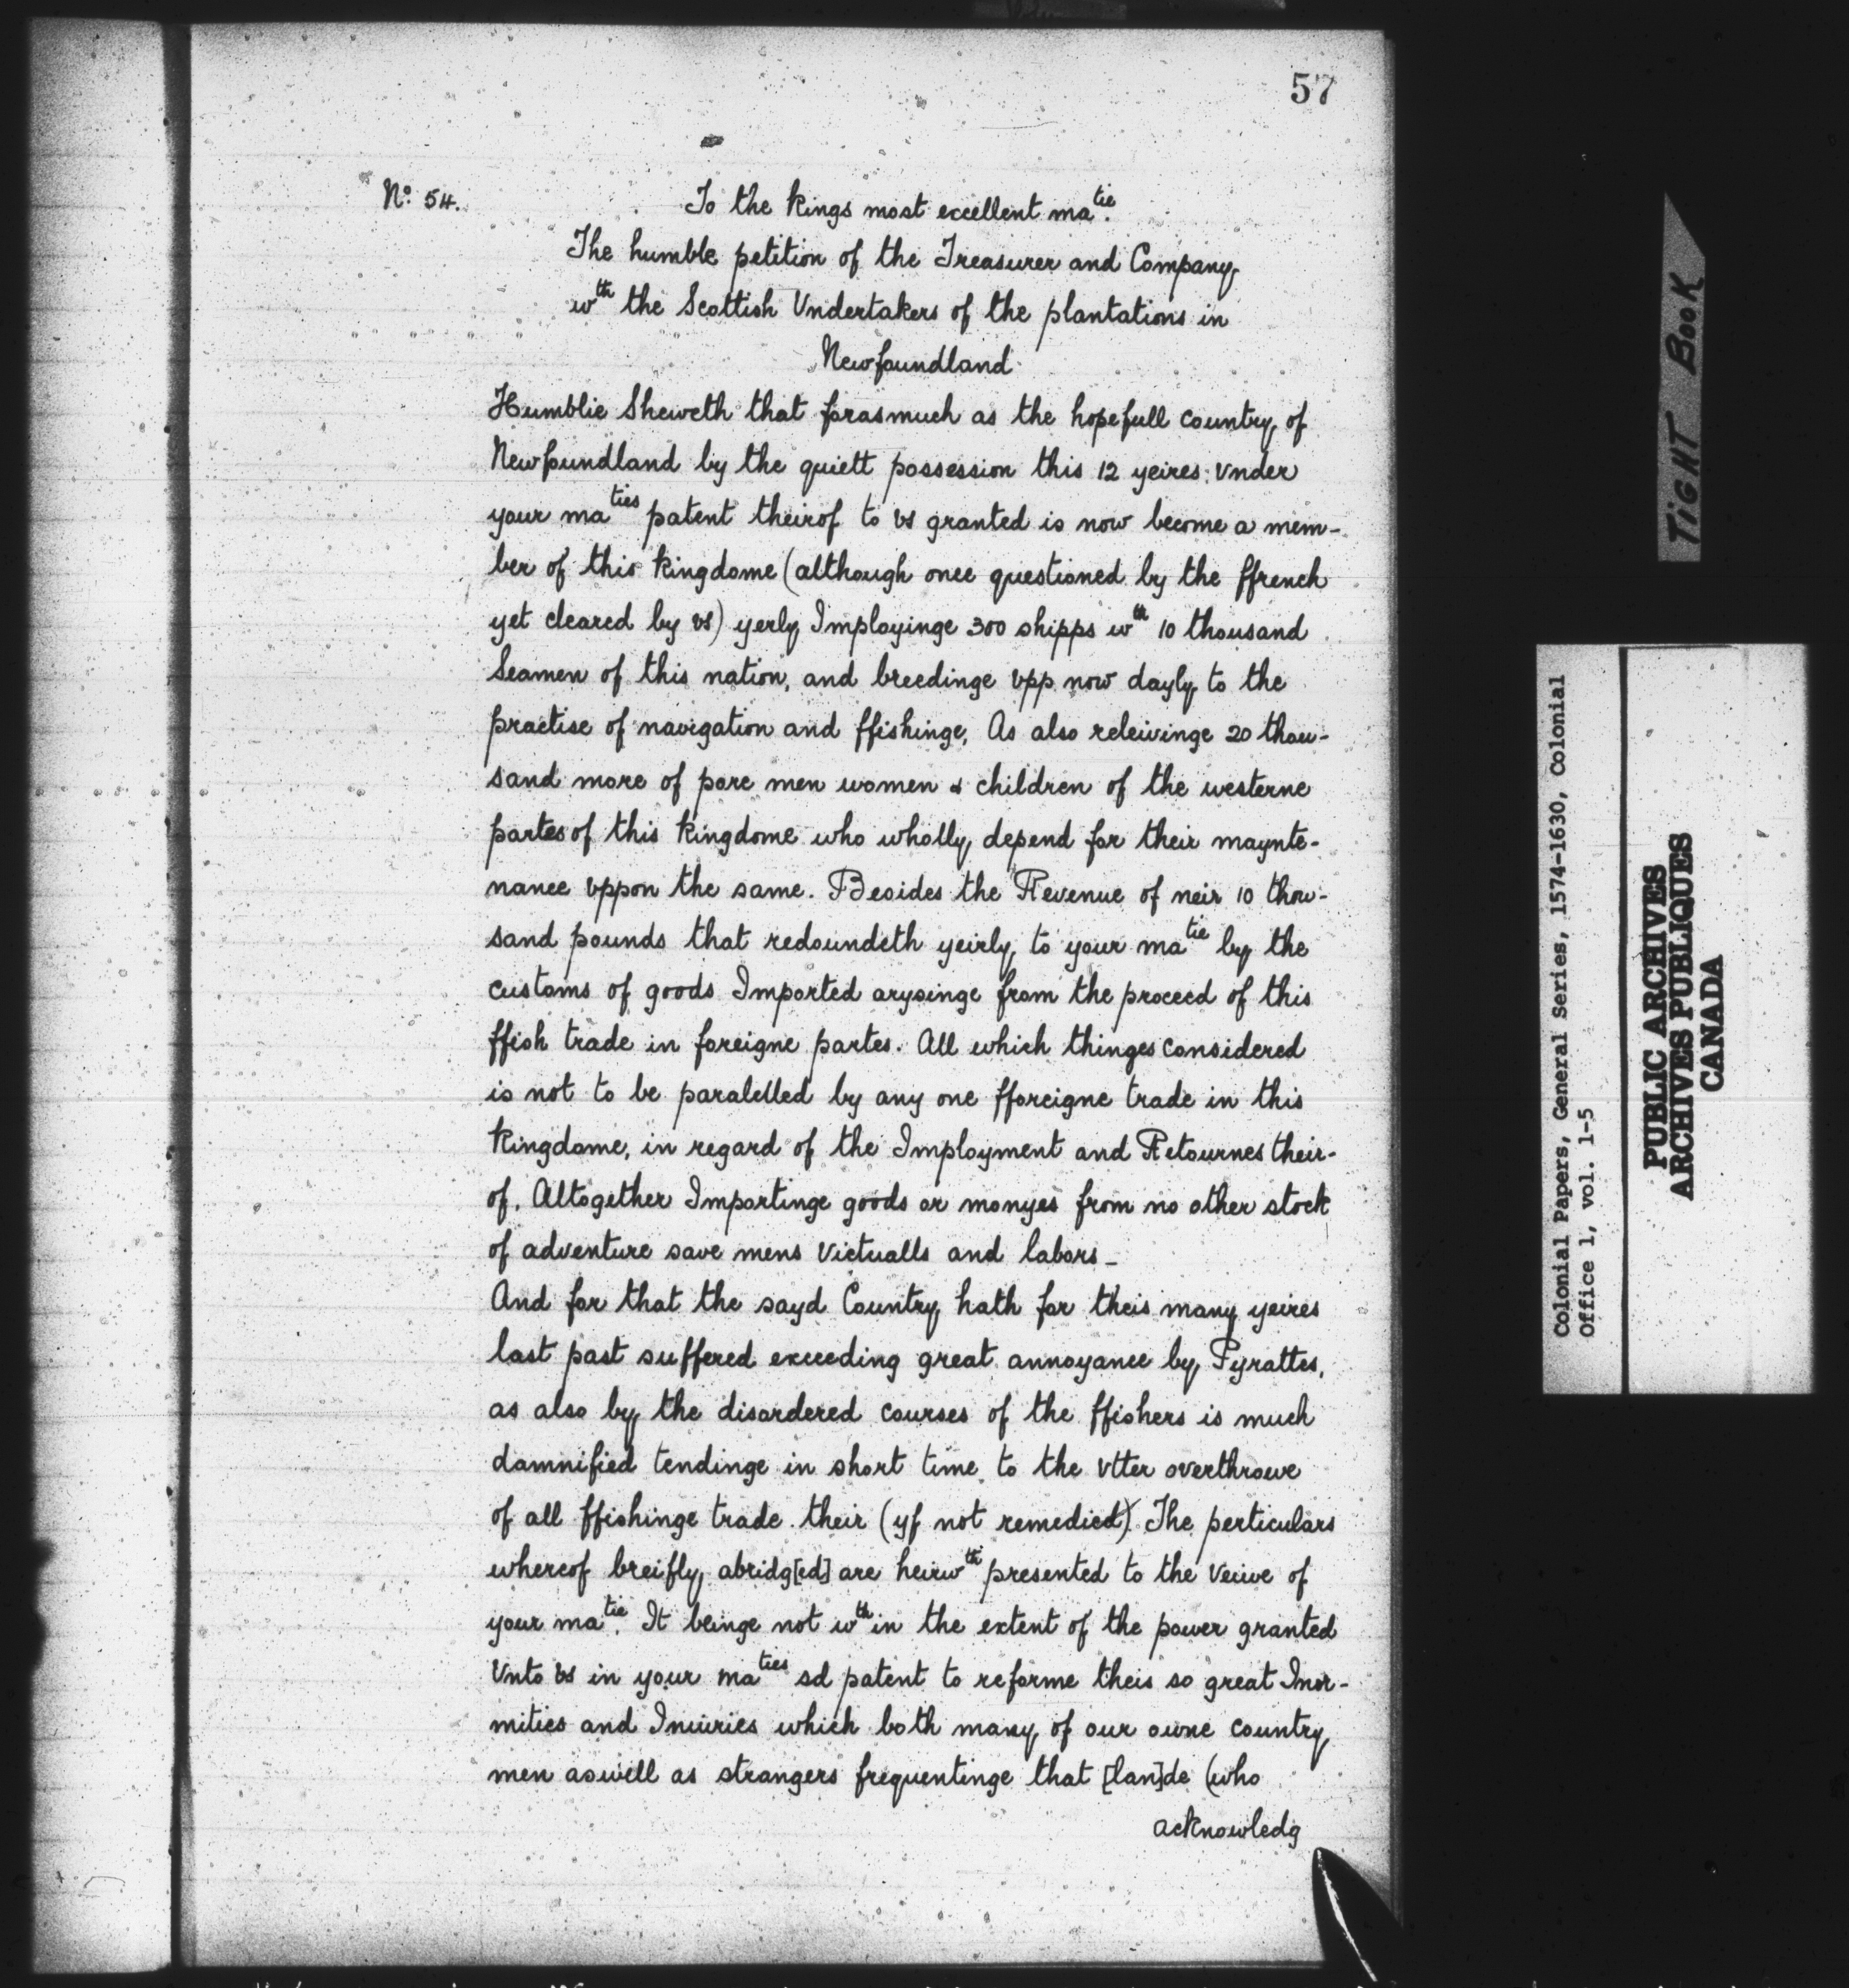 57
No: 54.
To the kings most excellent ma^tie.
The humble petition of the Treasurer and Company
w^th the Scottish Vndertakers of the plantations in
Newfoundland
Humblie Sheweth that forasmuch as the hopefull country of
Newfoundland by the quiett possession this 12 yeires Vnder
your ma^ties patent theirof to vs granted is now become a mem-
ber of this kingdome (although once questioned by the ffrench
yet cleared by vs) yerly Imployinge 300 shipps w^th 10 thousand
Seamen of this nation, and breedinge vpp now dayly to the
practise of navigation and ffishinge, As also releivinge 20 thou-
sand more of pore men women & children of the westerne
partes of this kingdome who wholly depend for their maynte-
nance vppon the same. Besides the Revenue of neir 10 thou-
sand pounds that redoundeth yeirly to your ma^tie by the
customs of goods Imported arysinge from the proceed of this
ffish trade in foreigne partes. All which thinges considered
is not to be paralelled by any one fforeigne trade in this
kingdome, in regard of the Imployment and Retournes their-
of. Altogether Importinge goods or monyes from no other stock
of adventure save mens Victualls and labors_
And for that the sayd Country hath for theis many yeires
last past suffered exceeding great annoyance by Pyrattes,
as also by the disordered courses of the ffishers is much
damnified tendinge in short time to the vtter overthrowe
of all ffishinge trade their (yf not remedied) The perticulars
whereof breifly abridg[ed] are heirw^th presented to the veiwe of
your ma^tie. It beinge not w^thin the extent of the power granted
Vnto vs in your ma^ties sd patent to reforme theis so great Inor-
mities and Iniuries which both many of our owne country
men aswell as strangers frequentinge that [lan]de (who
acknowledg
TIGHT BOOK
Colonial Papers, General Series, 1574-1630, Colonial
Office 1, vol. 1-5
PUBLIC ARCHIVES
ARCHIVES PUBLIQUES
CANADA